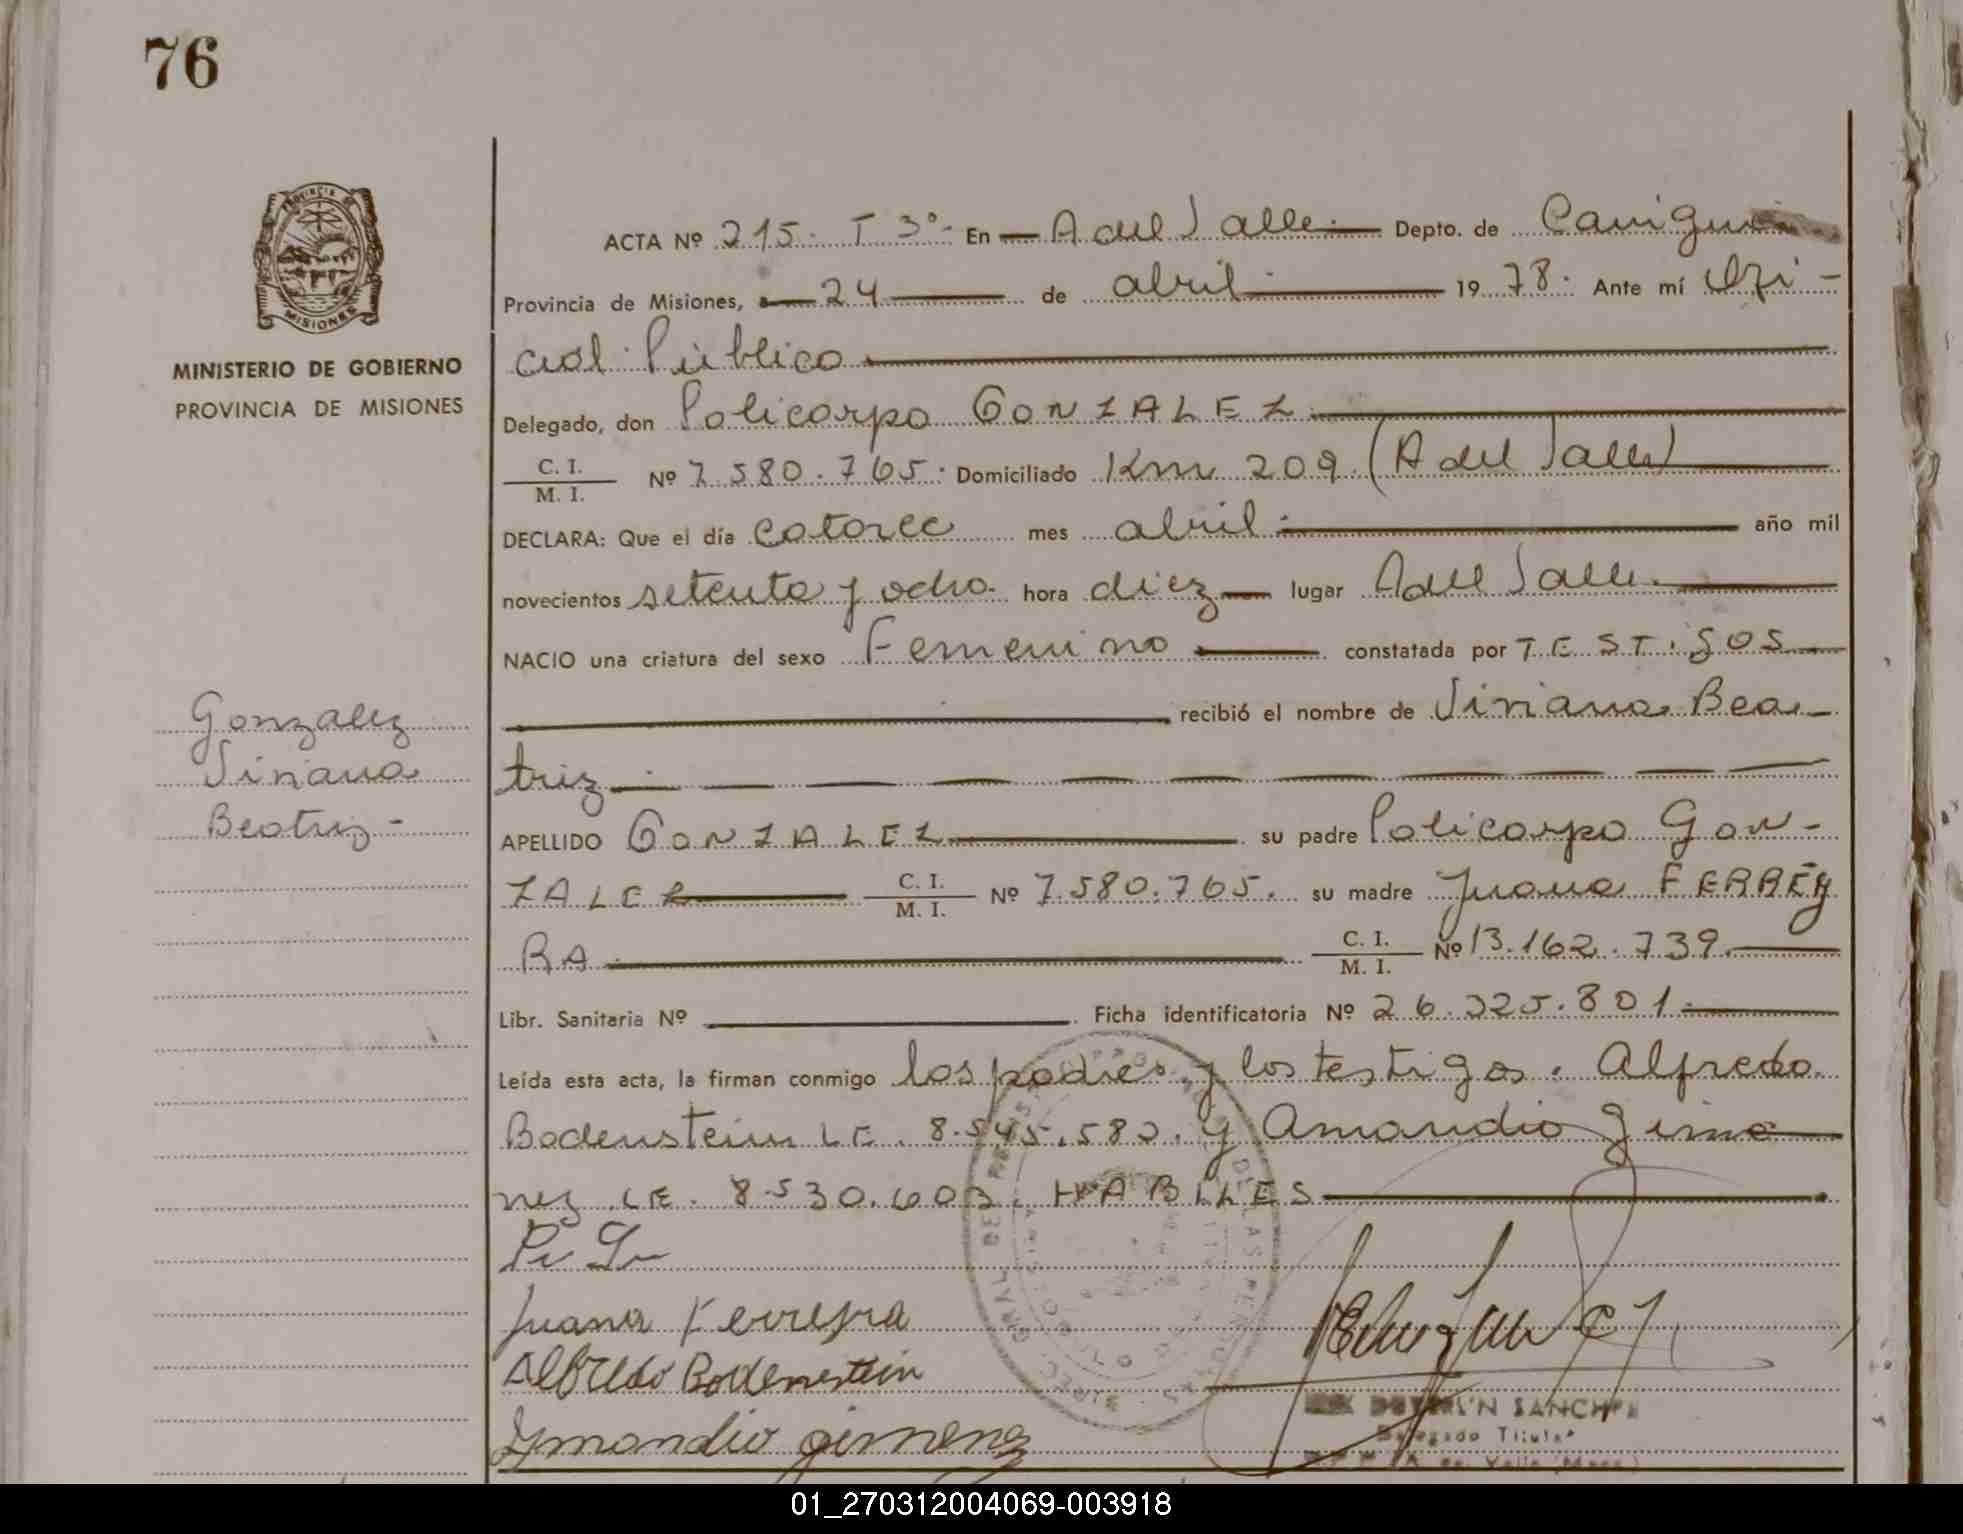 76
PROVINCIA
MISIONES
MINISTERIO DE GOBIERNO
PROVINCIA DE MISIONES
ACTA Nº 215. T 3º- En A del Valle. Depto. de Cainguás
Provincia de Misiones, a 24 de abril 1978. Ante mí Ofi-
cial Público
Delegado, don Policarpo GONZALEZ
C. I.
M. I. Nº 7.580.765. Domiciliado Km 209 (A del Valle)
DECLARA: Que el día catorce mes abril año mil
novecientos setenta y ocho. hora diez lugar A del Valle.
NACIO una criatura del sexo Femenino constatada por TESTIGOS
recibió el nombre de Viviana Bea-
triz
Gonzalez
Viviana
Beatriz-
APELLIDO GONZALEZ su padre Policarpo Gon-
ZALEZ C. I.
M. I. Nº 7.580.765. su madre Juana FERREY
RA C. I.
M. I. Nº 13.162.739.
Libr. Sanitaria Nº Ficha identificatoria Nº 26.325.801.
Leída esta acta, la firman conmigo los padres y los testigos. Alfredo
Bodenstein LE. 8.545.580. y Amandio Jime
nez LE. 8.530.603. HABILES
Juana Ferreyra
Alfredo Bodenstein
Amandio gimenez
SANCHEZ
Delegado Titular
01_270312004069-003918